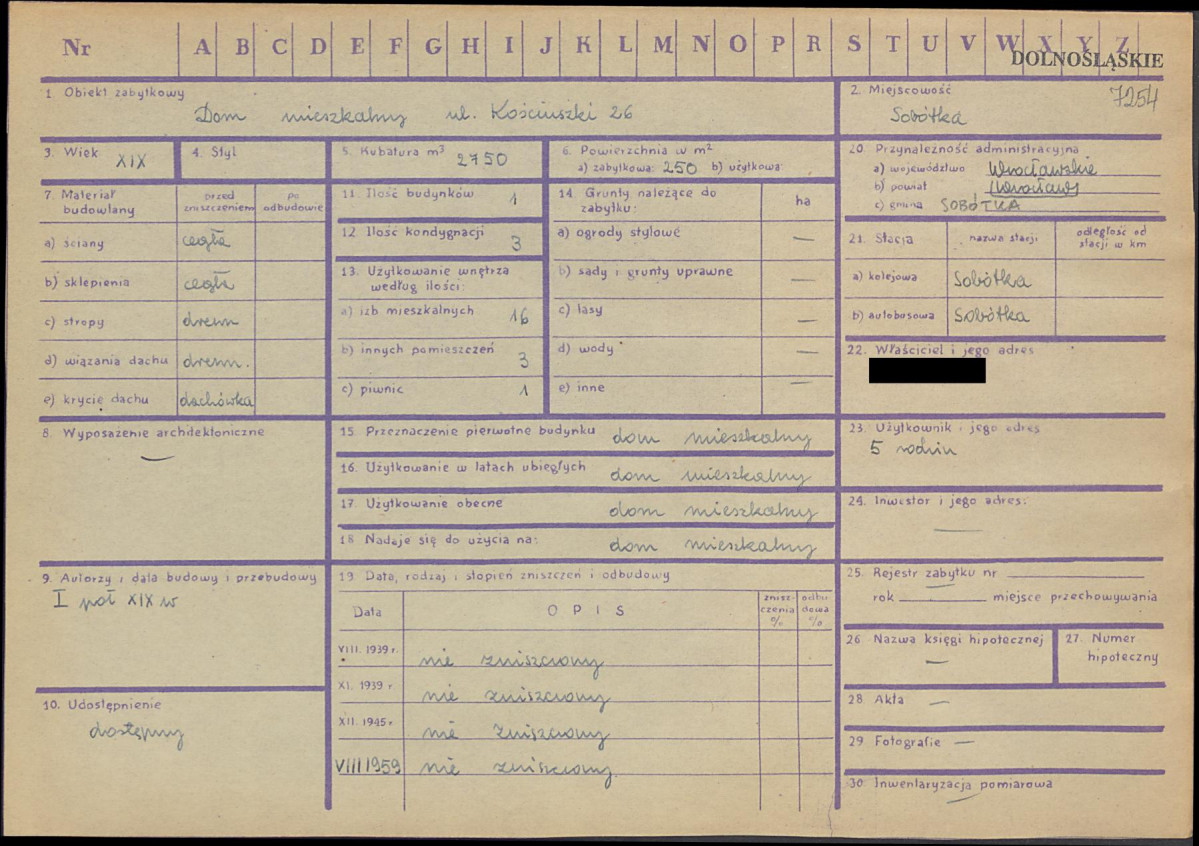 Nr A B C D E F G H I J K L M N O P R S T U V W X Y Z
DOLNOŚLĄSKIE
1. Obiekt zabytkowy
Dom mieszkalny ul. Kościuszki 26
2. Miejscowość
7254
Sobótka
3. Wiek XIX
4. Styl
5. Kubatura m³ 2750
6. Powierzchnia w m²
a) zabytkowa: 250 b) użytkowa:
20. Przynależność administracyjna
a) województwo Wrocławskie
b) powiat Wrocław
c) gmina SOBÓTKA
7. Materiał budowlany
przed zniszczeniem
po odbudowie
a) ściany cegła
b) sklepienia cegła
c) stropy drewn
d) wiązania dachu drewn.
e) krycie dachu dachówka
11. Ilość budynków 1
12. Ilość kondygnacji 3
13. Użytkowanie wnętrza
według ilości:
a) izb mieszkalnych 16
b) innych pomieszczeń 3
c) piwnic 1
14. Grunty należące do
zabytku:
ha
a) ogrody stylowe —
b) sady i grunty uprawne —
c) lasy —
d) wody —
e) inne —
21. Stacja
nazwa stacji
odległość od
stacji w km
a) kolejowa Sobótka
b) autobusowa Sobótka
22. Właściciel i jego adres
8. Wyposażenie architektoniczne
—
15. Przeznaczenie pierwotne budynku dom mieszkalny
16. Użytkowanie w latach ubiegłych dom mieszkalny
17. Użytkowanie obecne dom mieszkalny
18. Nadaje się do użycia na: dom mieszkalny
23. Użytkownik i jego adres
5 rodzin
24. Inwestor i jego adres:
—
9. Autorzy i data budowy i przebudowy
I poł XIX w
10. Udostępnienie
dostępny
19. Data, rodzaj i stopień zniszczeń i odbudowy
Data
OPIS
znisz-
czenia
%
odbu
dowa
%
VIII. 1939 r. nie zniszczony
XI. 1939 r nie zniszczony
XII. 1945 r nie zniszczony
VIII 1959 nie zniszczony
25. Rejestr zabytku nr —
rok miejsce przechowywania
26 Nazwa księgi hipotecznej
—
27. Numer
hipoteczny
28 Akta —
29 Fotografie —
30. Inwentaryzacja pomiarowa
—